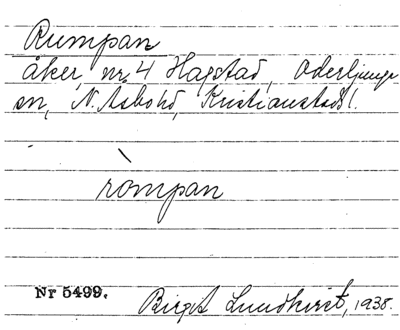 Rumpan
åker, nr 4 Hagstad, Oderljunga
sn, N. Åsbo hd, Kristianstads l.
ròmpan
Nr 5499.
Birgit Lundkvist, 1938.